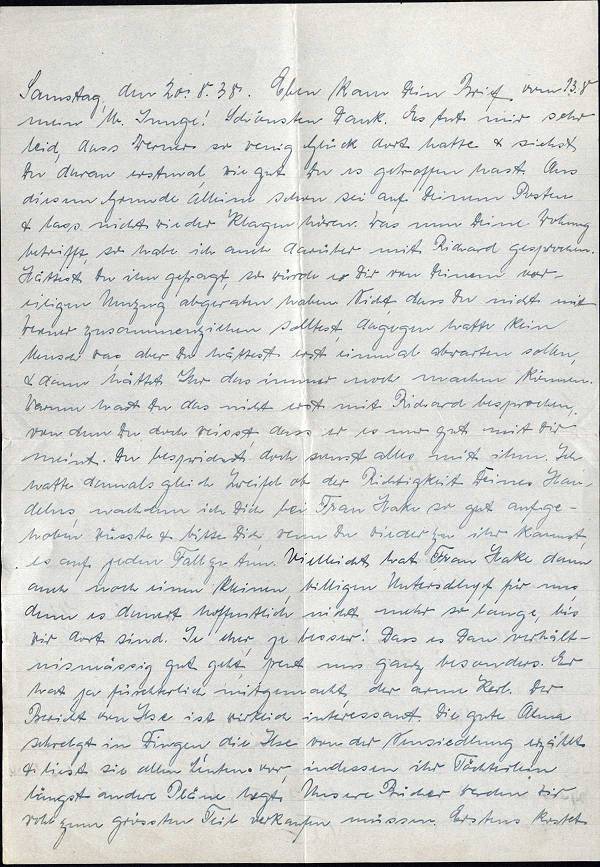 Samstag, den 20.8.38. Eben kam Dein Brief vom 13.8
mein l. Junge! Schönsten Dank. Es tut mir sehr
leid, dass Werner so wenig Glück dort hatte & siehst
Du daran erstmal wie gut Du es getroffen hast. Aus
diesem Grunde alleine schon sei auf Deinem Posten
& lass nicht wieder Klagen hören. Was nun Deine Wohnung
betrifft, so habe ich auch darüber mit Richard gesprochen.
Hättest Du ihn gefragt, so würde er Dir von Deinem vor-
eiligen Umzug abgeraten haben. Nicht, dass Du nicht mit
Werner zusammenziehen solltest, dagegen hatte kein
Mensch was aber Du hättest erst einmal abwarten sollen,
& dann hättet Ihr das immer noch machen können.
Warum hast Du das nicht erst mit Richard besprochen,
von dem Du doch weisst, dass er es nur gut mit Dir
meint. Du besprichst doch sonst alles mit ihm. Ich
hatte damals gleich Zweifel ob der Richtigkeit Deines Han-
delns, nachdem ich Dich bei Frau Hake so gut aufge-
hoben wusste & bitte Dich, wenn Du wieder zu ihr kannst,
es auf jeden Fall zu tun. Vielleicht hat Frau Hake dann
auch noch einen kleinen, billigen Unterschlupf für uns,
denn es dauert hoffentlich nicht mehr so lange, bis
wir dort sind. Je eher, je besser! Dass es Dan verhält-
nismässig gut geht, freut uns ganz besonders. Er
hat ja fürchterlich mitgemacht, der arme Kerl. Der
Bericht von Ilse ist wirklich interessant. Die gute Alma
schwelgt in Dingen die Ilse von der Neusiedlung erzählt
& liest sie allen Leuten vor, indessen ihr Töchterlein
längst andere Pläne hegt. Unsere Bücher werden wir
wohl zum grössten Teil verkaufen müssen. Erstens kostet